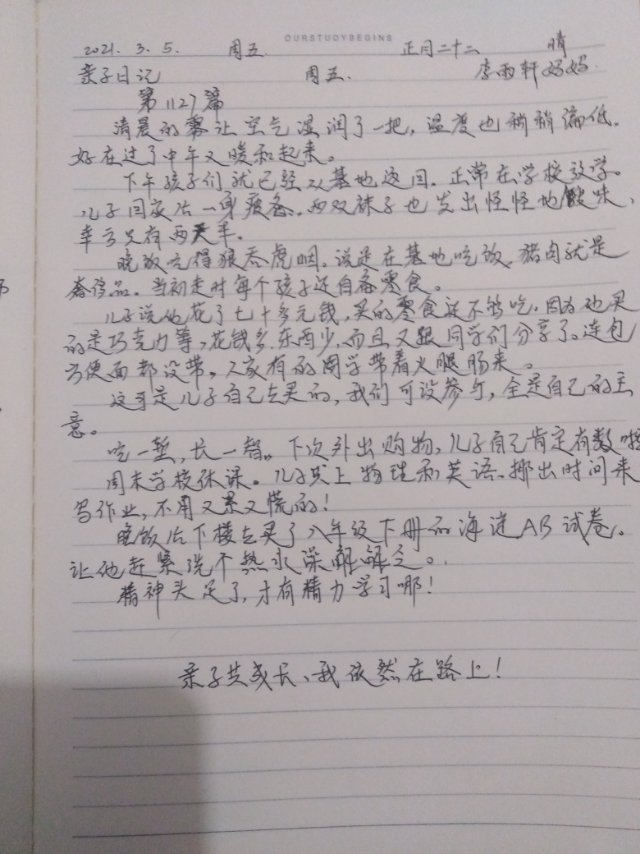 OURSTUDYBEGINS
2021. 3. 5. 周五. 正月二十二 晴
亲子日记 周五. 李雨轩妈妈.
第1127篇
清晨的雾让空气湿润了一把，温度也稍稍偏低.
好在过了中午又暖和起来。
下午孩子们就已经从基地返回. 正常在学校放学。
儿子回家后一身疲惫、两双袜子也发出怪怪地酸味、
幸亏只有两天半。
晚饭吃得狼吞虎咽。说是在基地吃饭，猪肉就是
奢侈品。当初走时每个孩子还自备零食。
儿子说他花了七十多元钱，买的零食还不够吃，因为他买
的是巧克力等，花钱多，东西少，而且又跟同学们分享了。连包
方便面都没带。人家有的同学带着火腿肠来。
这可是儿子自己去买的，我们可没参与，全是自己的主
意。
吃一堑，长一智。下次外出购物，儿子自己肯定有数啦
周末学校休课。儿子共上物理和英语、挪出时间来
写作业，不用又累又慌的！
晚饭后下楼去买了八年级下册的海淀AB试卷。
让他赶紧洗个热水澡解解乏。
精神头足了，才有精力学习哪！
亲子共成长、我依然在路上！